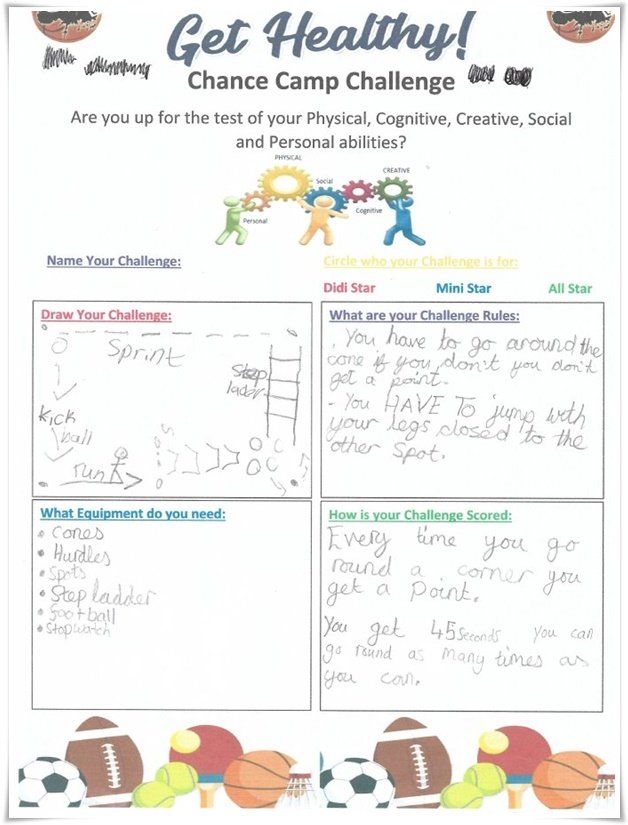 Get Healthy!
Chance Camp Challenge
Are you up for the test of your Physical, Cognitive, Creative, Social
and Personal abilities?
PHYSICAL
CREATIVE
Social
Cognitive
Personal
Name Your Challenge:
Circle who your Challenge is for:
Didi Star Mini Star All Star
Draw Your Challenge:
Sprint
Step
lader
kick
ball
run
What are your Challenge Rules:
. You have to go around the
cone if you don't you don't
get a point.
- You HAVE TO jump with
your legs closed to the
other spot.
What Equipment do you need:
• Cones
• Hurdles
• Spots
• Step ladder
• football
• Stopwatch
How is your Challenge Scored:
Every time you go
round a corner you
get a point.
You get 45 seconds you can
go round as many times as
you can.